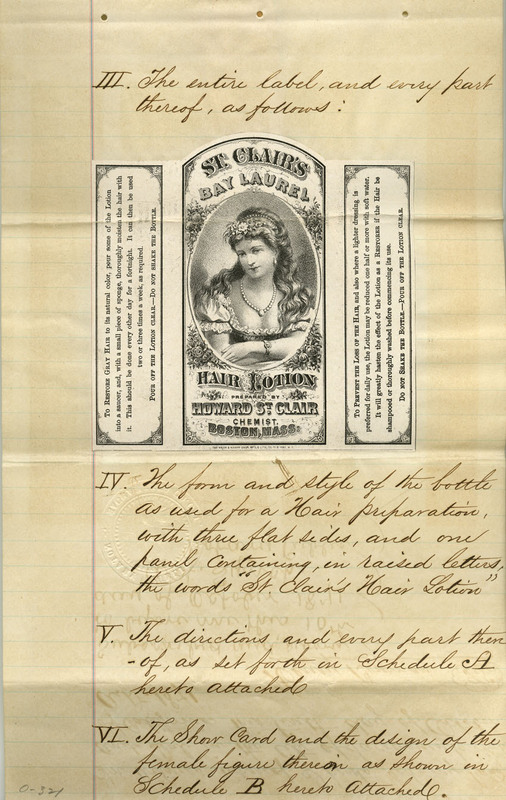 III. The entire label, and every part
thereof, as follows:
To Restore Gray Hair to its natural color, pour some of the Lotion
into a saucer, and, with a small piece of sponge, thoroughly moisten the hair with
it. This should be done every other day for a fortnight. It can then be used
two or three times a week, as required.
Pour off the Lotion clear.—Do not shake the Bottle.
ST. CLAIR'S
BAY LAUREL
HAIR LOTION
PREPARED BY
HOWARD ST CLAIR
CHEMIST.
BOSTON, MASS.
To Prevent the Loss of the Hair, and also where a lighter dressing is
preferred for daily use, the Lotion may be reduced one half or more with soft water.
It will greatly hasten the effect of the Lotion as a Restorer if the Hair be
shampooed or thoroughly washed before commencing its use.
Do not Shake the Bottle.—Pour off the Lotion clear.
IV. The form and style of the bottle
as used for a Hair preparation,
with three flat sides, and one
panel containing, in raised letters,
the words "St. Clair's Hair Lotion"
V. The directions and every part there
-of, as set forth in Schedule A
hereto attached
VI. The Show Card and the design of the
female figure therein as shown in
Schedule B hereto attached.
0-321